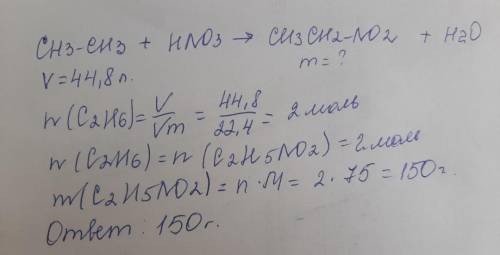 CH3-CH3 + HNO3 → CH3CH2-NO2 + H2O
V=44,8 л. m=?
n(C2H6)= V/Vm = 44,8/22,4 = 2 моль
n(C2H6)= n(C2H5NO2)=2 моль
m(C2H5NO2)= n·M= 2·75=150г.
Ответ: 150г.